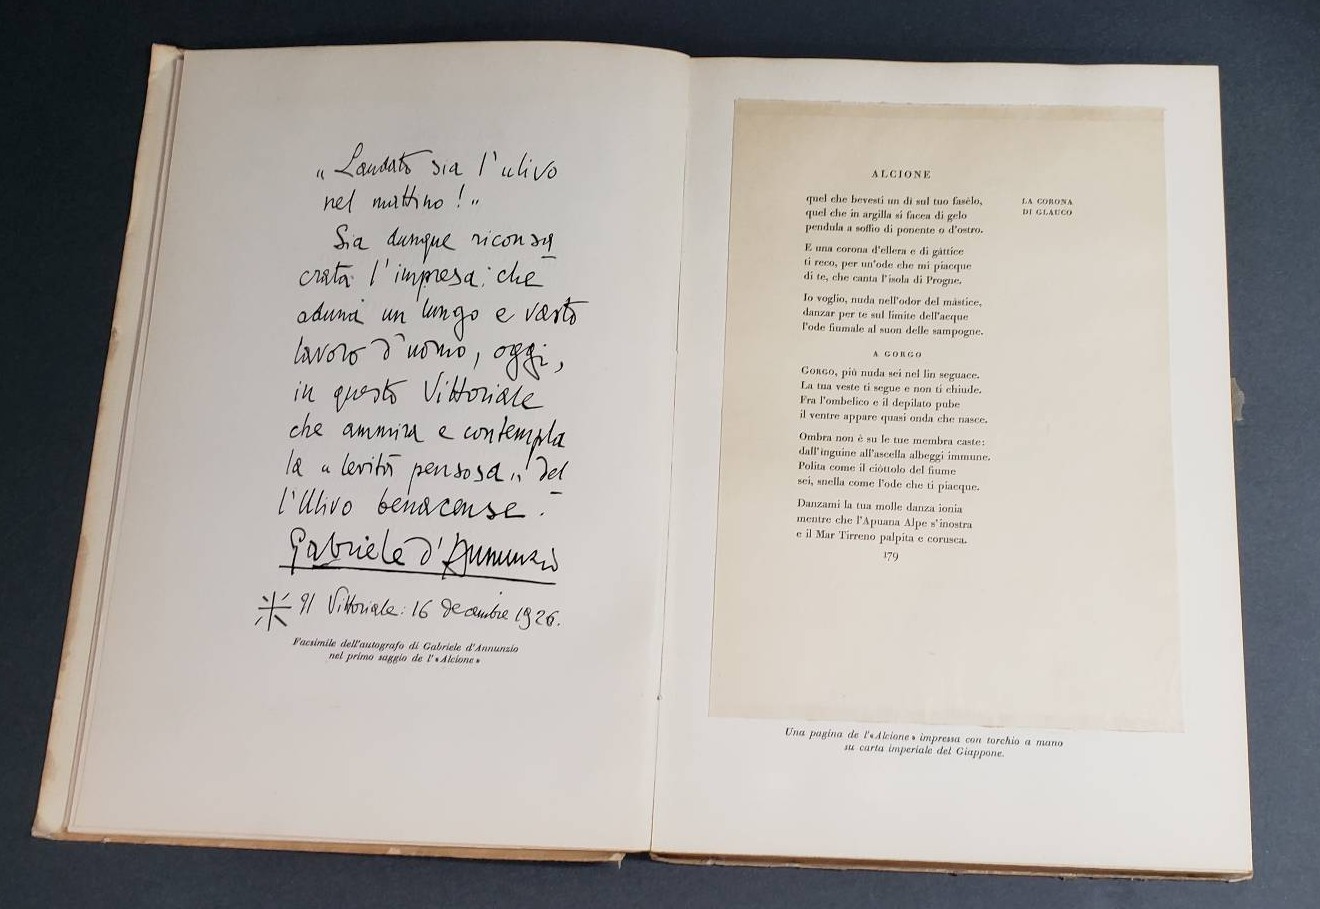 „ Laudato sia l'ulivo
nel mattino ! „
Sia dunque riconsa
crata l'impresa: che
aduna un lungo e vasto
lavoro d'uomo, oggi,
in questo Vittoriale
che ammira e contempla
la „ levità pensosa „ del
l'Ulivo benacense .
Gabriele d'Annunzio
Vittoriale: 16 decembre 1926.
Facsimile dell'autografo di Gabriele d'Annunzio
nel primo saggio de l'«Alcione»
ALCIONE
quel che bevesti un dì sul tuo fasèlo,
quel che in argilla si facea di gelo
pendula a soffio di ponente o d'ostro.
LA CORONA
DI GLAUCO
E una corona d'ellera e di gàttice
ti reco, per un'ode che mi piacque
di te, che canta l'isola di Progne.
Io voglio, nuda nell'odor del màstice,
danzar per te sul limite dell'acque
l'ode fiumale al suon delle sampogne.
A GORGO
GORGO, più nuda sei nel lin seguace.
La tua veste ti segue e non ti chiude.
Fra l'ombelico e il depilato pube
il ventre appare quasi onda che nasce.
Ombra non è su le tue membra caste:
dall'inguine all'ascella albeggi immune.
Polita come il ciòttolo del fiume
sei, snella come l'ode che ti piacque.
Danzami la tua molle danza ionia
mentre che l'Apuana Alpe s'inostra
e il Mar Tirreno palpita e corusca.
179
Una pagina de l'«Alcione» impressa con torchio a mano
su carta imperiale del Giappone.